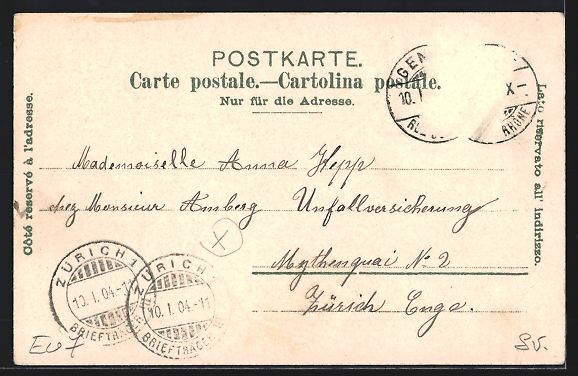 POSTKARTE.
Carte postale.—Cartolina postale.
Nur für die Adresse.
Côté réservé à l'adresse.
Lato riservato all' indirizzo.
GEN
10. I
X—
RHÔNE
Mademoiselle Anna Kepp
chez Monsieur Amberg Unfallversicherung
Mythenquai No 2
Zürich Enge.
ZÜRICH 1
10. I. 04.-11
BRIEFTRÄGER
ZÜRICH
10. I. 04.-11
BRIEFTRÄGER
SV.